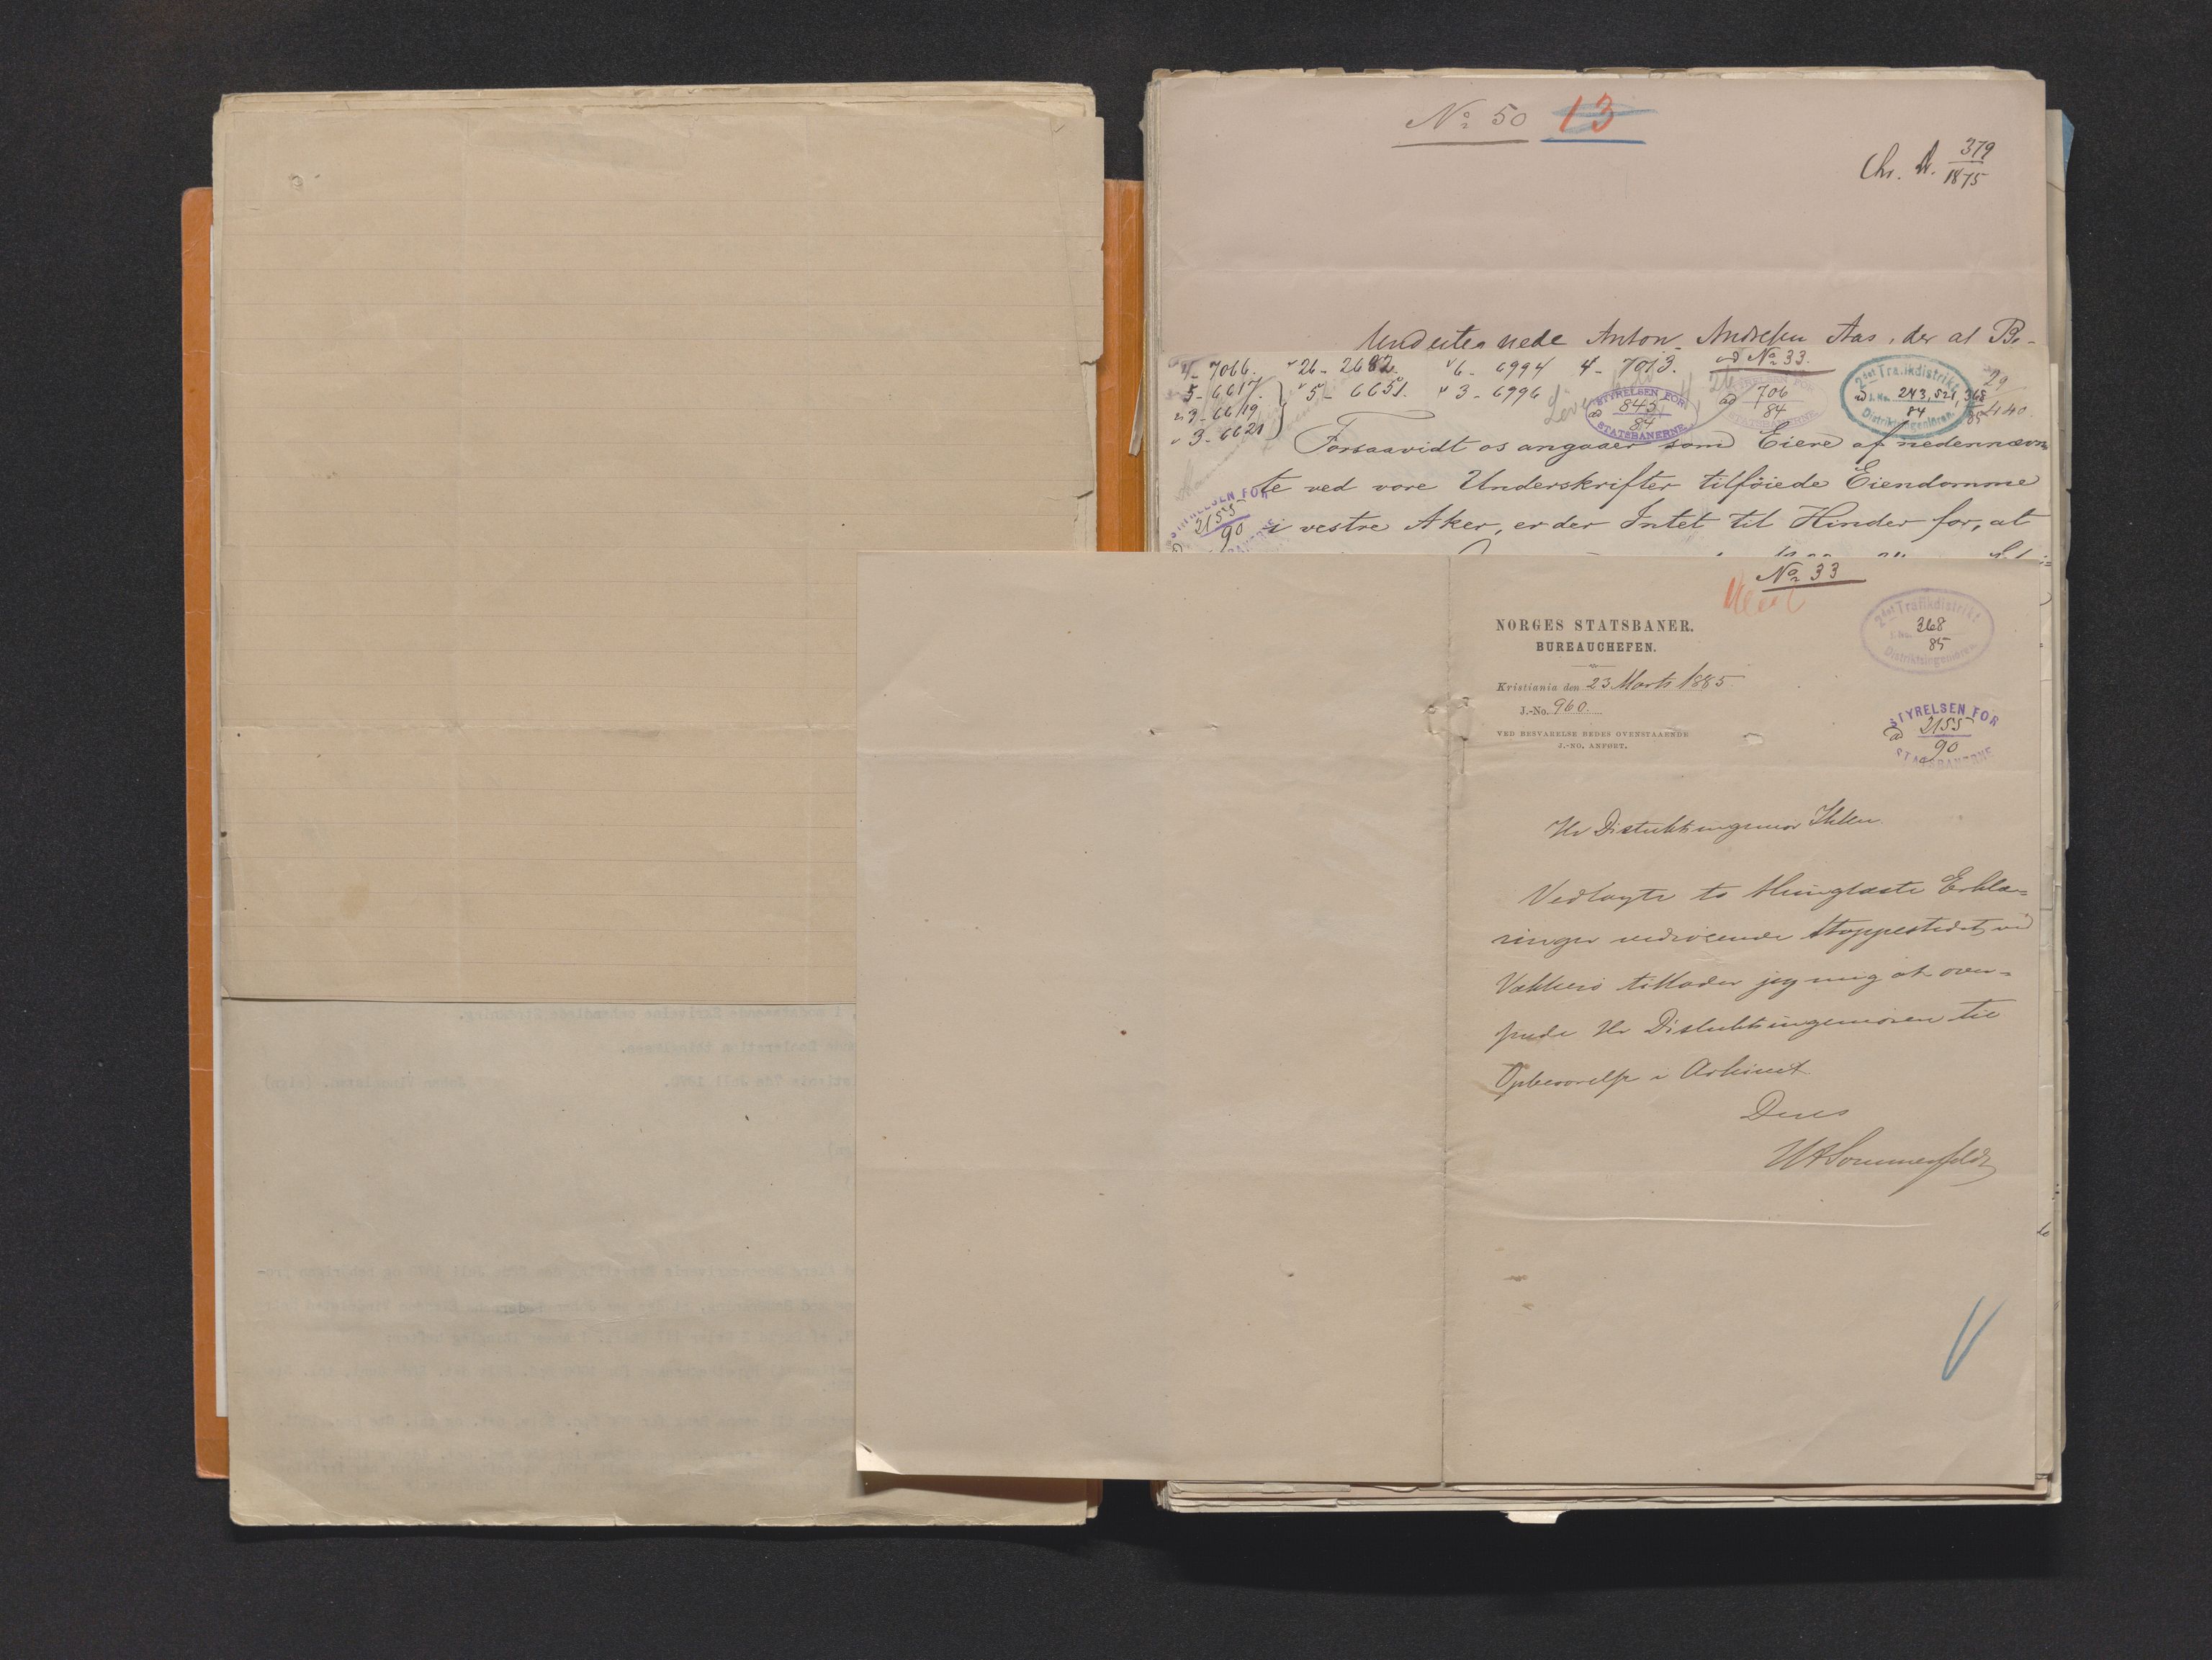 No 50 13
Chr. D. 379
1875
Undertegnede Anton Andresen Aas, der at Be-
4 - 7066. 26 - 2682. 6 - 6994 4 - 7013. ad No 33.
5 - 6617. 5 - 6651. 3 - 6996
3 - 6619
3 - 6621
STYRELSEN FOR
ad 845
84
STATSBANERNE
ad 706
84
STATSBANERNE
2det Trafikdistrikt
ad J. No. 243, 521, 368
84 85
Distriktsingeniøren.
29
440
Forsaavidt os angaaer som Eiere af nedennævn-
te ved vore Underskrifter tilføiede Eiendomme
i vestre Aker, er der Intet til Hinder for, at
STYRELSEN FOR
ad 2155
90
No 33
NORGES STATSBANER.
BUREAUCHEFEN.
Kristiania den 23 Marts 1885
J.-No. 960.
VED BESVARELSE BEDES OVENSTAAENDE
J.-NO. ANFØRT.
2det Trafikdistrikt
J. No. 368
85
Distriktsingeniøren
STYRELSEN FOR
ad 2155
90
STATSBANERNE
Hr Distriktsingeniør Ihlen.
Vedlagte to thinglæste Erklæ-
ringer vedrørende Stoppestedet ved
Vækkerø tillader jeg mig at over-
sende Hr Distriktsingeniøren til
Opbevarelse i Arkivet
Deres
Sommerfeldt